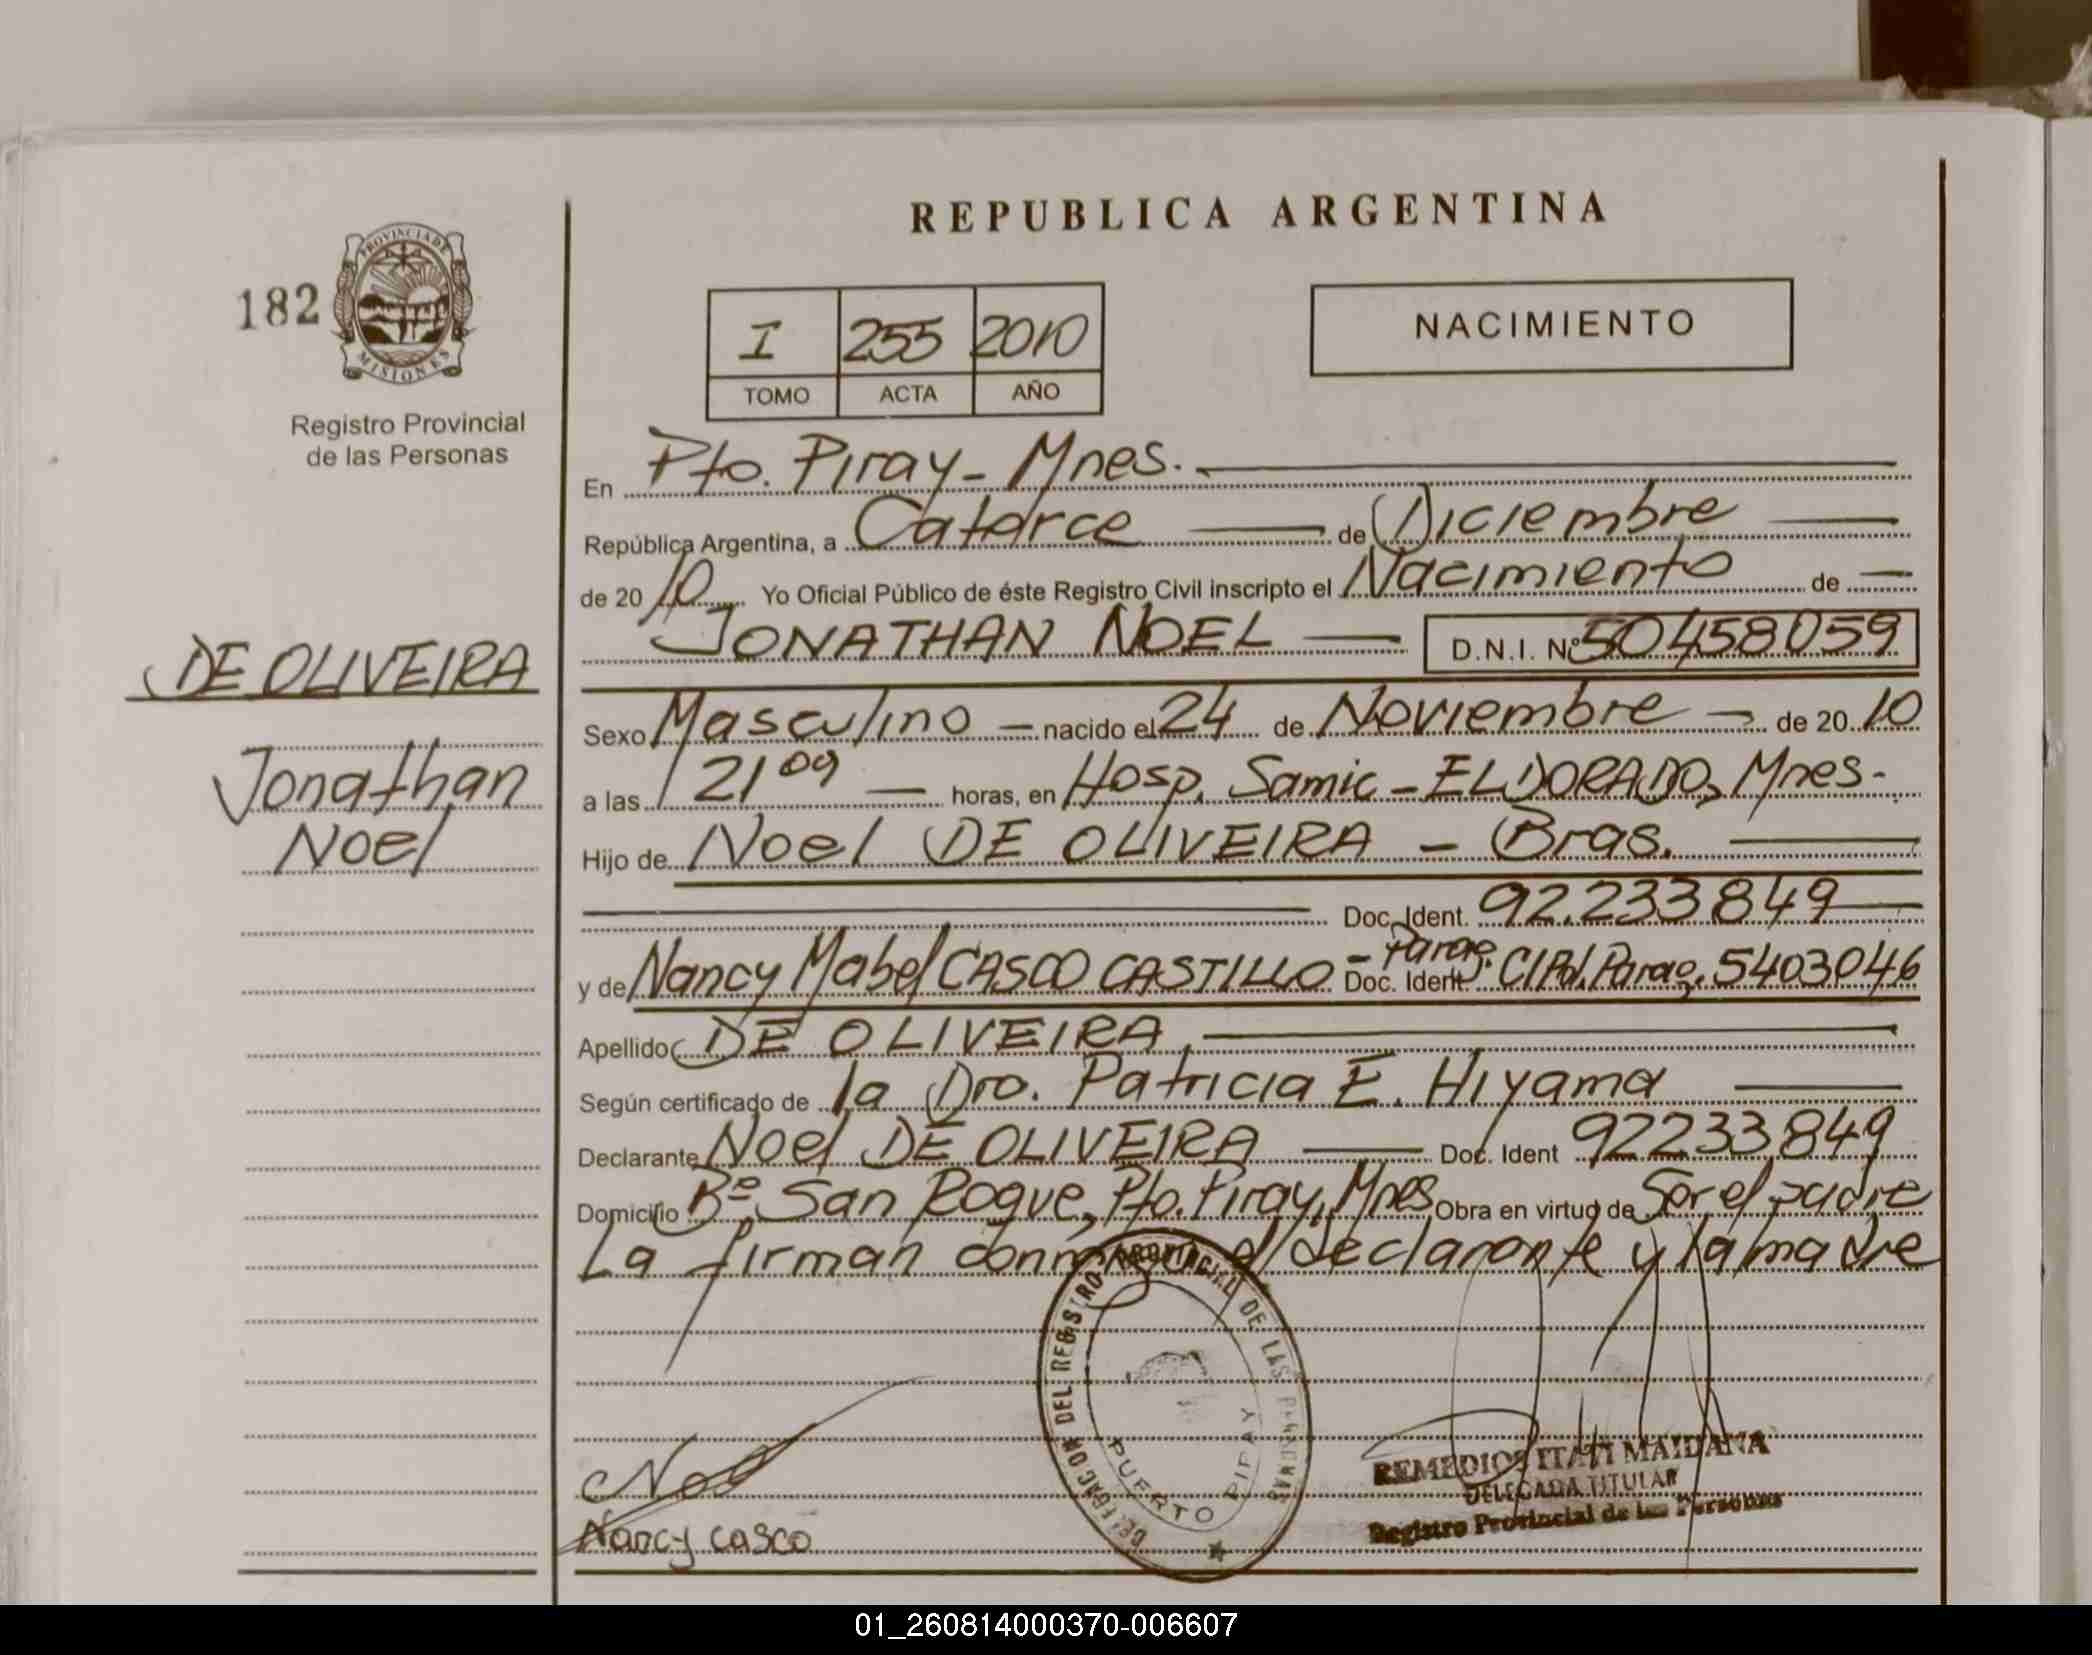 REPUBLICA ARGENTINA
182
PROVINCIA DE
MISIONES
Registro Provincial
de las Personas
I 255 2010
TOMO ACTA AÑO
NACIMIENTO
En Pto. Piray - Mnes.
República Argentina, a Catorce de Diciembre
de 20 10 Yo Oficial Público de éste Registro Civil inscripto el Nacimiento de
JONATHAN NOEL D.N.I. Nº 50458059
DE OLIVEIRA
Jonathan
Noel
Sexo Masculino nacido el 24 de Noviembre de 20 10
a las 21 09 horas, en Hosp. Samic - ELDORADO, Mnes -
Hijo de Noel DE OLIVEIRA - Bras.
Doc. Ident. 92.233849
y de Nancy Mabel CASCO CASTILLO - Parag. Doc. Ident. CI Pol. Parag. 5403046
Apellido DE OLIVEIRA
Según certificado de la Dra. Patricia E. Hiyama
Declarante Noel DE OLIVEIRA Doc. Ident 92233849
Domicilio Bº San Roque, Pto. Piray, Mnes Obra en virtud de Ser el padre
La firman conmigo el declarante y la madre
DELEGACION DEL REGISTRO PROVINCIAL DE LAS PERSONAS
PUERTO PIRAY
Noel
Nancy casco
REMEDIOS ITATI MAIDANA
DELEGADA TITULAR
Registro Provincial de las Personas
01_260814000370-006607